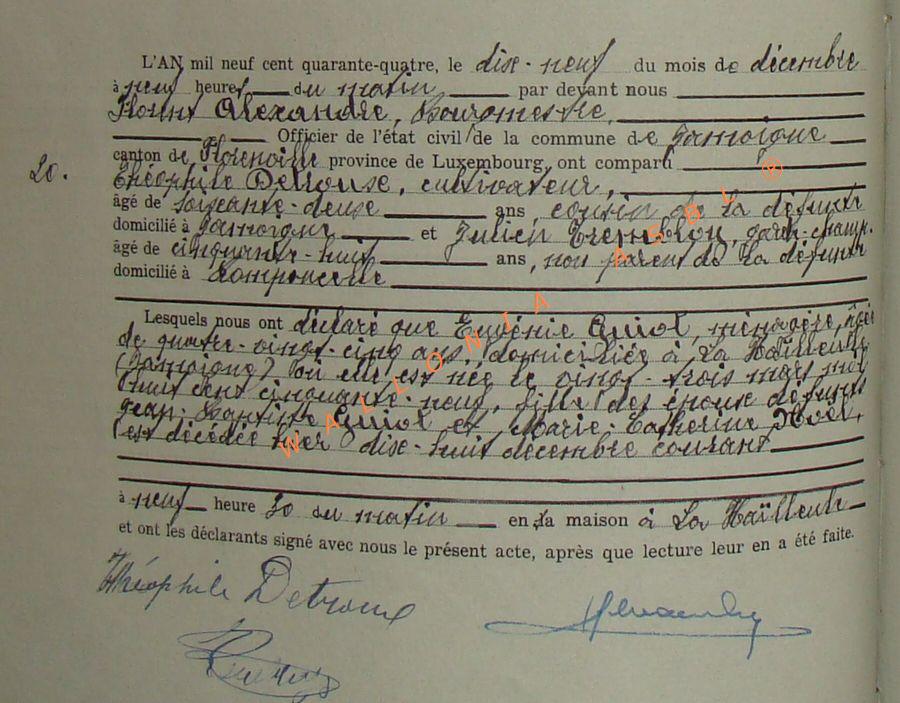 L'AN mil neuf cent quarante-quatre, le dix-neuf du mois de décembre
à neuf heures du matin par devant nous
Florent Alexandre, Bourgmestre,
Officier de l'état civil de la commune de Jamoigne
20.
canton de Florenville province de Luxembourg, ont comparu
Théophile Detrouse, cultivateur,
âgé de soixante-deuse ans, cousin de la défunte
domicilié à Jamoigne et Julien Tremblou, garde-champ.
âgé de cinquante-huit ans, non parent de la défunte
domicilié à Romponcelle
Lesquels nous ont déclaré que Eugénie Guiot, ménagère, âgée
de quatre-vingt-cinq ans, domiciliée à La Hailleule
(Jamoigne) où elle est née le vingt-trois mars mil
huit cent cinquante-neuf, fille des époux défunts
Jean-Baptiste Guiot et Marie-Catherine
est décédée hier dix-huit décembre courant
à neuf heure 30 du matin en sa maison à La Haïlleule
et ont les déclarants signé avec nous le présent acte, après que lecture leur en a été faite.
Théophile Detrouse
WALLONIA ASBL ®